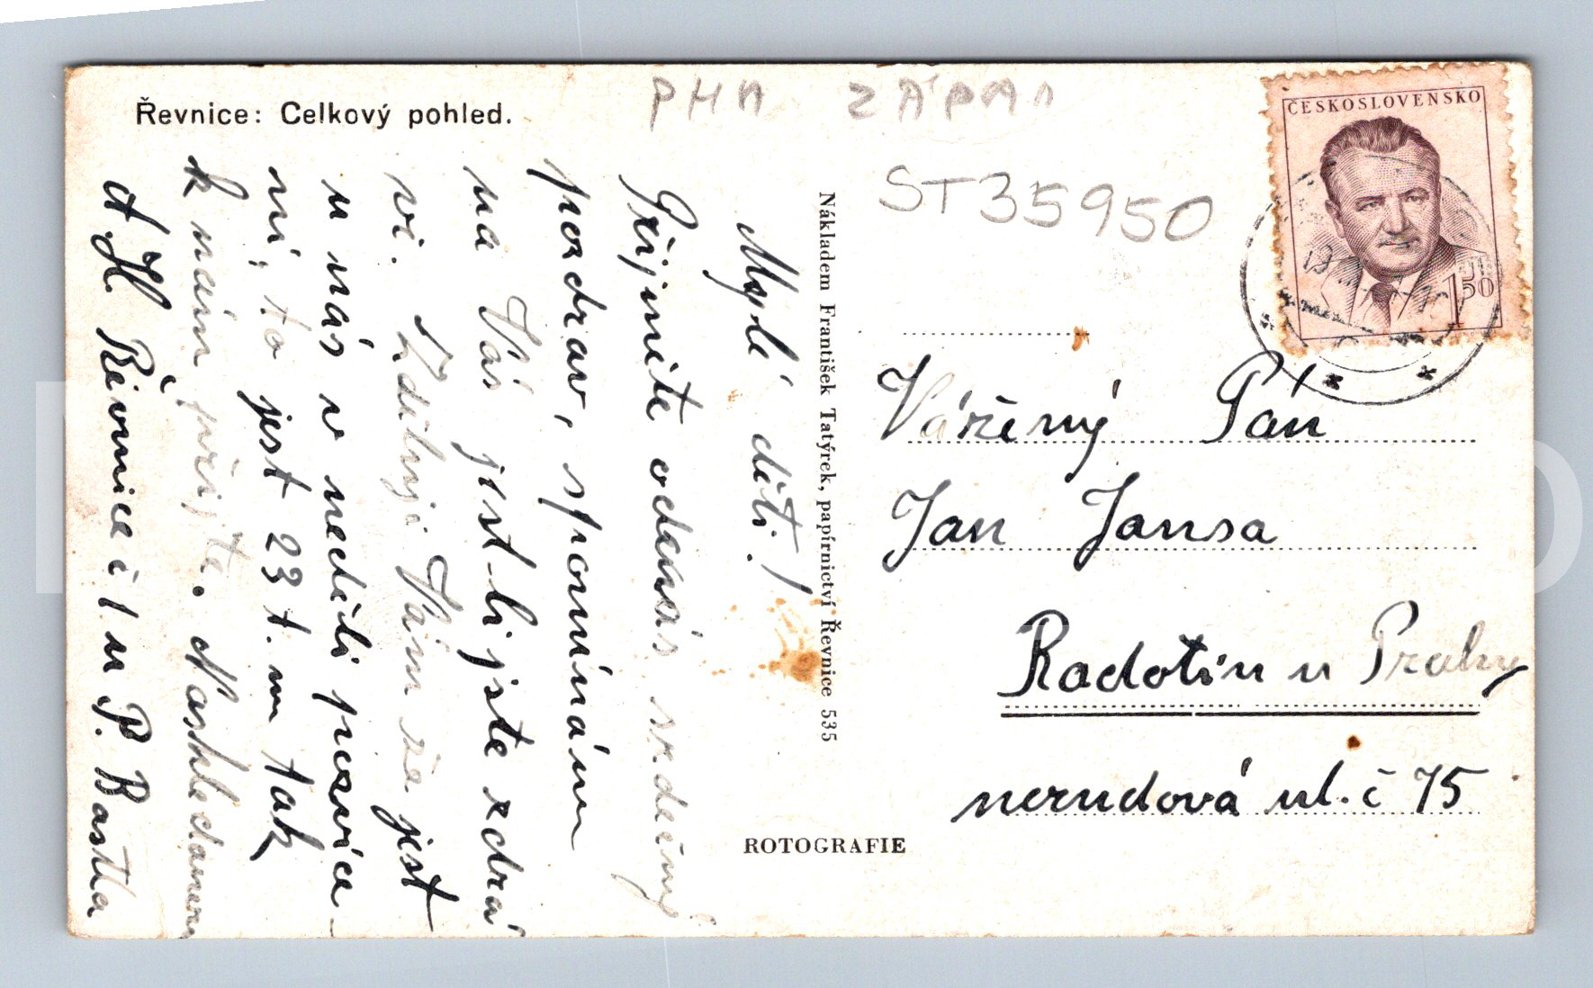 Řevnice: Celkový pohled.
PHA ZÁPAD
ST35950
ČESKOSLOVENSKO
1 50
Mylí dítí!
Přijměte odemás srdečný
pozdrav, spomínám
na Vás jest-li jste zdrá
vi. Zděluji Vám že jest
u nás v neděli posvíce-
ní, to jest 23 t.m tak
k nám přijďte. Naskledanou
A H. Řevnice č 1 u P. Bastla
Nákladem František Tatýrek, papírnictví Řevnice 535
ROTOGRAFIE
Vážený Pán
Jan Jansa
Radotín u Prahy
nerudová ul. č 75